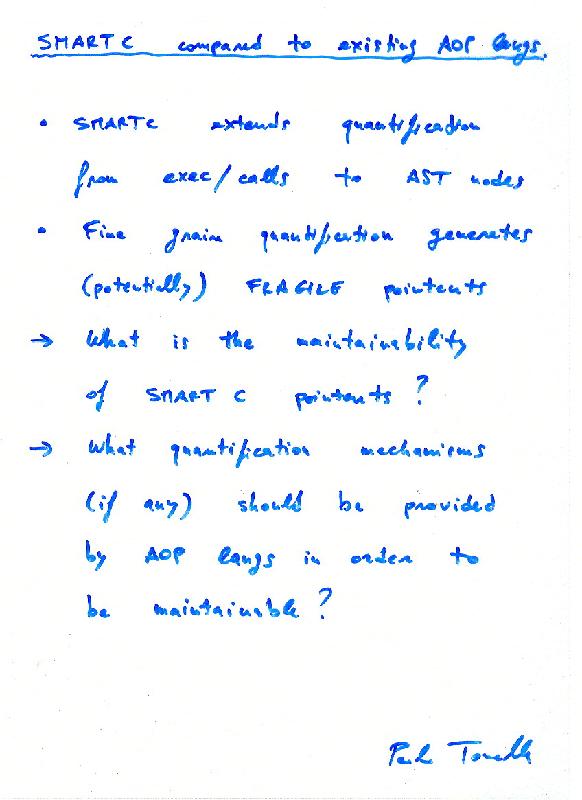 SMART C compared to existing AOP langs.
• SMART C extends quantification
from exec/calls to AST nodes
• Fine grain quantification generates
(potentially) FRAGILE pointcuts
→ What is the maintainability
of SMART C pointcuts?
→ What quantification mechanisms
(if any) should be provided
by AOP langs in order to
be maintainable?